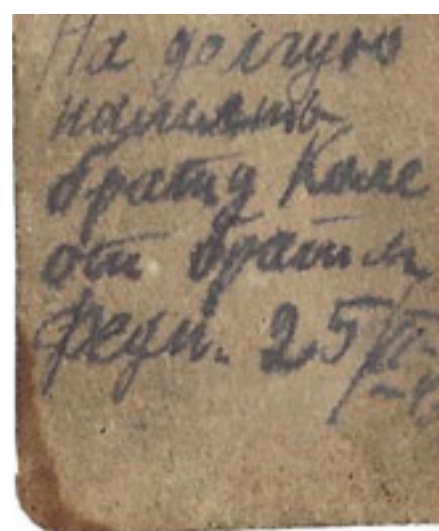 На долгую
память
брату Коле
от брата
Феди. 25